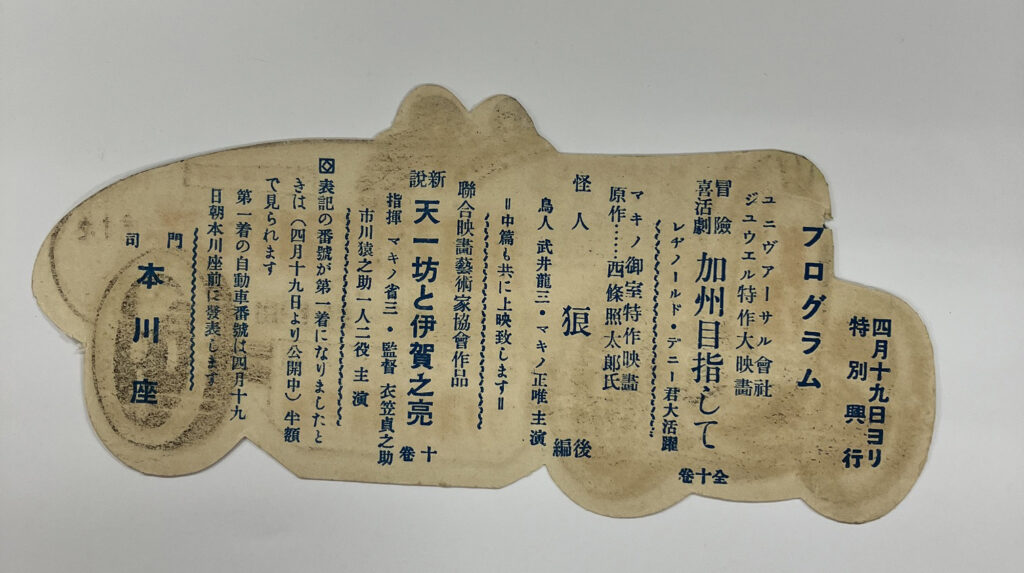 四月十九日ヨリ
特別興行
プログラム
ユニヴアーサル會社
ジユウエル特作大映畵
冒險
喜活劇
加州目指して
全十巻
レヂノールド・デニー君大活躍
マキノ御室特作映畵
原作……西條照太郎氏
怪人 狼 後編
鳥人 武井龍三・マキノ正唯主演
〓中篇も共に上映致します〓
聯合映畵藝術家協會作品
新說 天一坊と伊賀之亮 十巻
指揮 マキノ省三・監督 衣笠貞之助
市川猿之助一人二役主演
表記の番號が第一着になりましたと
きは(四月十九日より公開中)半額
で見られます
第一着の自動車番號は四月十九
日朝本川座前に發表します
門司
本川座